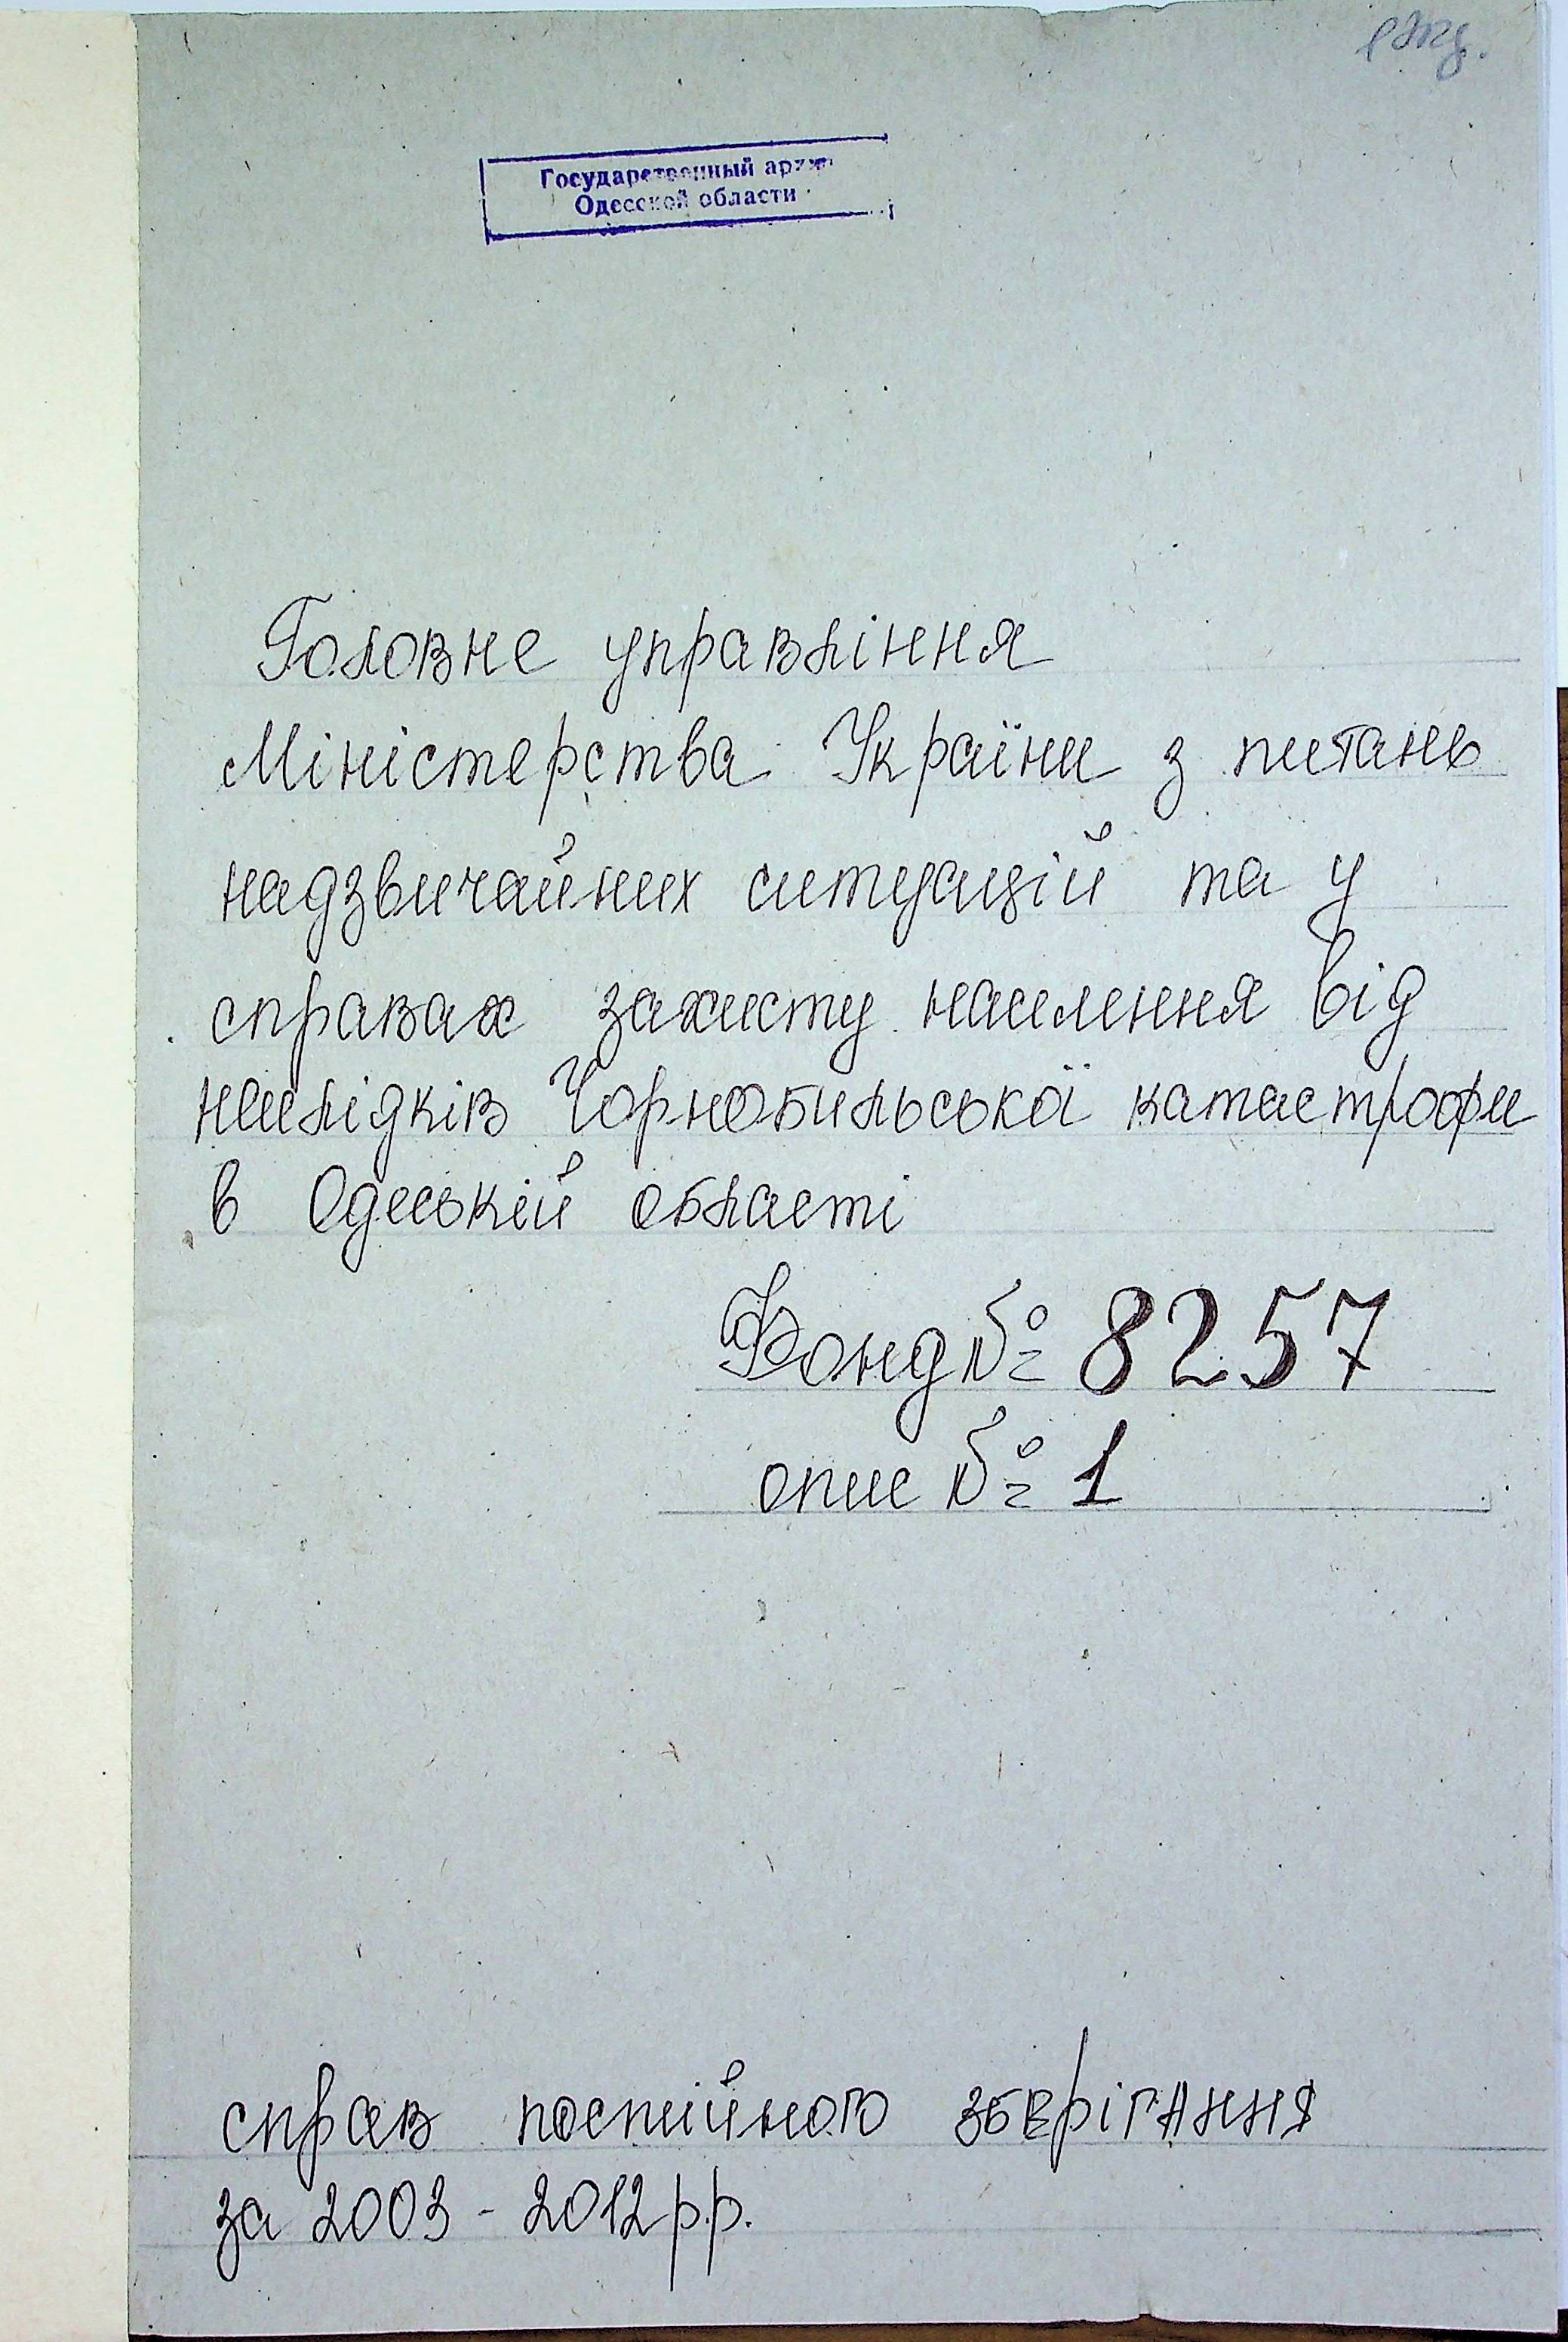 Государственный архив
Одесской области
Головне управління
Міністерства України з питань
надзвичайних ситуацій та у
справах захисту населення від
наслідків Чорнобильської катастрофи
в Одеській області
Фонд № 8257
опис № 1
справ постійного зберігання
за 2003 - 2012 р.р.